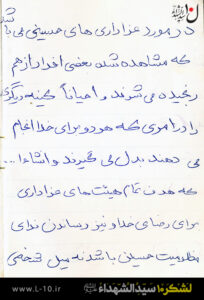 در مورد عزاداری های حسینی می باشد
که مشاهده شده بعضی افراد از هم
رنجیده می شوند و احیاناً کینه دیگری
را در اموری که هر دو برای خدا انجام
می دهند بدل می گیرند و انشاءا...
که هدف تمام هیئت های عزاداری
برای رضای خدا و نیز رساندن ندای
مظلومیت حسین باشد نه میل شخصی
www.L-10.ir
لشکر۱۰ سیدالشهداء